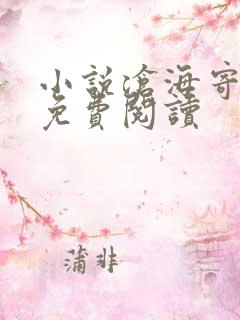 小說滄海寄
免費閱讀
蒲非